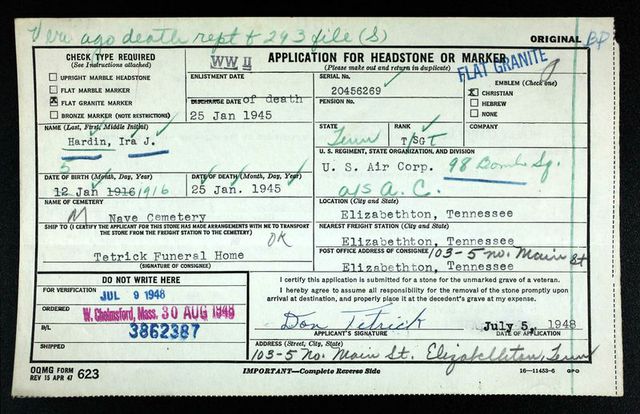 Veri ago death rept + 293 file (S)
ORIGINAL BP
CHECK TYPE REQUIRED
(See Instructions attached)
UPRIGHT MARBLE HEADSTONE
FLAT MARBLE MARKER
X FLAT GRANITE MARKER
BRONZE MARKER (NOTE RESTRICTIONS)
WW II
APPLICATION FOR HEADSTONE OR MARKER
(Please make out and return in duplicate)
FLAT GRANITE
ENLISTMENT DATE
DISCHARGE DATE of death
25 Jan 1945
SERIAL No.
20456269
PENSION No.
EMBLEM (Check one)
X CHRISTIAN
HEBREW
NONE
NAME (Last, First, Middle Initial)
Hardin, Ira J.
STATE
Tenn
RANK
T/SGT
COMPANY
U. S. REGIMENT, STATE ORGANIZATION, AND DIVISION
U. S. Air Corp. 98 Bomb Sq.
a/s A. C.
5
DATE OF BIRTH (Month, Day, Year)
12 Jan 1916 1916
DATE OF DEATH (Month, Day, Year)
25 Jan. 1945
NAME OF CEMETERY
M Nave Cemetery
LOCATION (City and State)
Elizabethton, Tennessee
SHIP TO (I CERTIFY THE APPLICANT FOR THIS STONE HAS MADE ARRANGEMENTS WITH ME TO TRANSPORT
THE STONE FROM THE FREIGHT STATION TO THE CEMETERY)
OK
Tetrick Funeral Home
(SIGNATURE OF CONSIGNEE)
NEAREST FREIGHT STATION (City and State)
Elizabethton, Tennessee
POST OFFICE ADDRESS OF CONSIGNEE 103-5 no. Main St
Elizabethton, Tennessee
DO NOT WRITE HERE
FOR VERIFICATION
JUL 9 1948
ORDERED
W. Chelmsford, Mass. 30 AUG 1948
B/L
3862387
SHIPPED
I certify this application is submitted for a stone for the unmarked grave of a veteran.
I hereby agree to assume all responsibility for the removal of the stone promptly upon
arrival at destination, and properly place it at the decedent's grave at my expense.
Don Tetrick July 5, 1948
APPLICANT'S SIGNATURE DATE OF APPLICATION
ADDRESS (Street, City, State)
103-5 No. Main St. Elizabethton, Tenn
OQMG FORM
REV 15 APR 47 623
IMPORTANT—Complete Reverse Side
16—11453-6 GPO